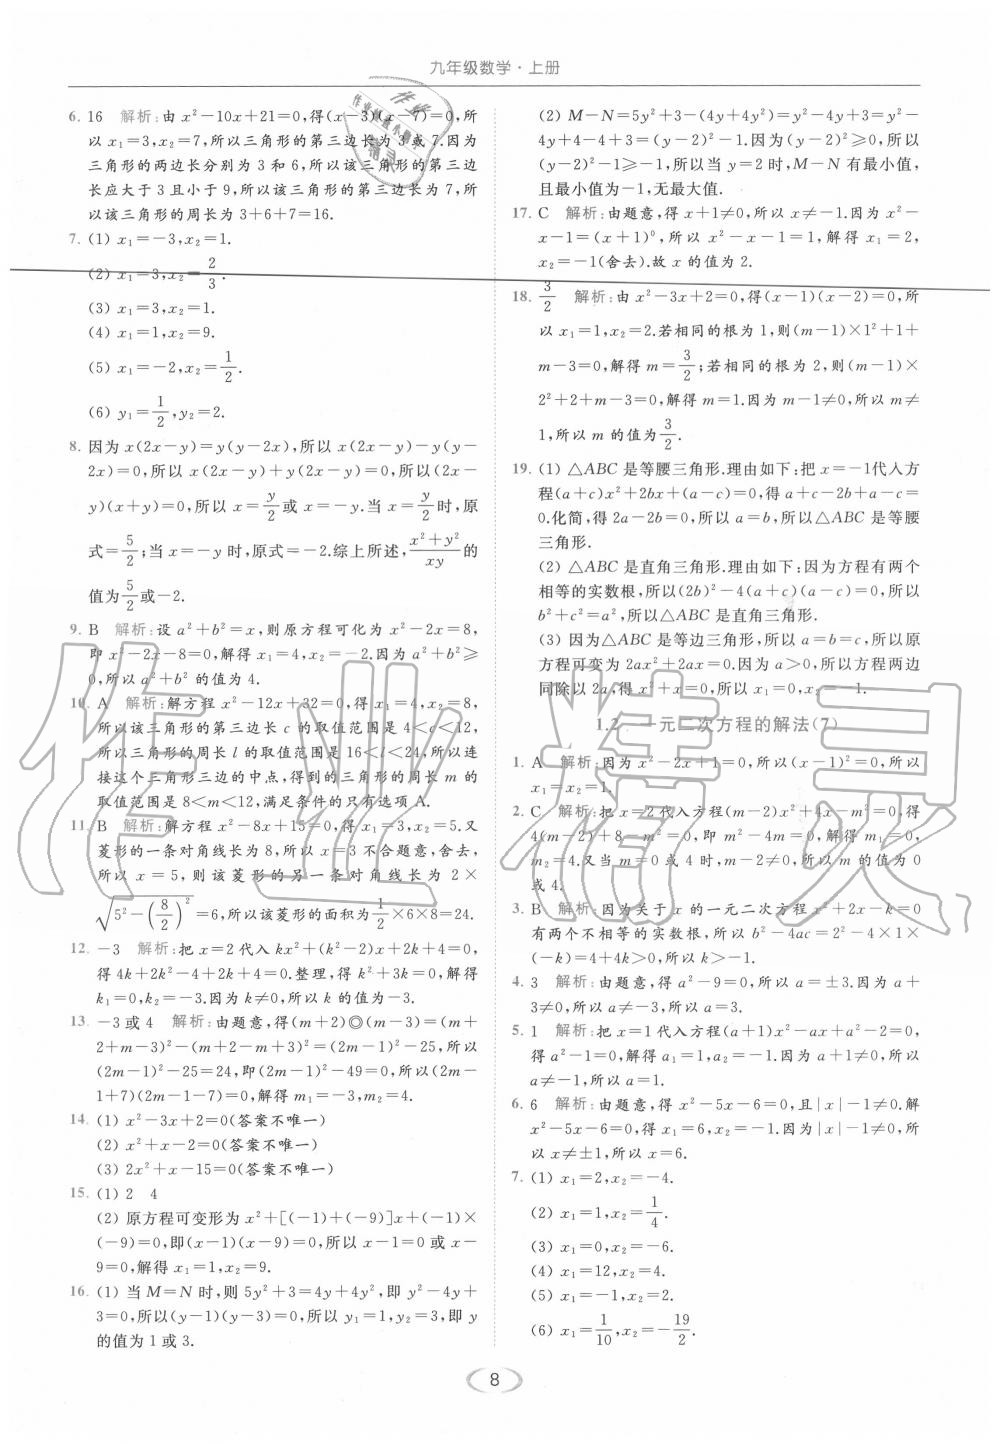 九年级数学·上册
6. 16 解析:由 x²-10x+21=0,得(x-3)(x-7)=0,所
以 x₁=3,x₂=7,所以三角形的第三边长为 3 或 7.因为
三角形的两边长分别为 3 和 6,所以该三角形的第三边
长应大于 3 且小于 9,所以该三角形的第三边长为 7,所
以该三角形的周长为 3+6+7=16.
7. (1) x₁=-3,x₂=1.
(2) x₁=3,x₂=2/3.
(3) x₁=3,x₂=1.
(4) x₁=1,x₂=9.
(5) x₁=-2,x₂=1/2.
(6) y₁=1/2,y₂=2.
8. 因为 x(2x-y)=y(y-2x),所以 x(2x-y)-y(y-
2x)=0,所以 x(2x-y)+y(2x-y)=0,所以(2x-
y)(x+y)=0,所以 x=y/2或 x=-y.当 x=y/2时,原
式=5/2;当 x=-y 时,原式=-2.综上所述,(x²+y²)/xy的
值为5/2或-2.
9. B 解析:设 a²+b²=x,则原方程可化为 x²-2x=8,
即 x²-2x-8=0,解得 x₁=4,x₂=-2.因为 a²+b²≥
0,所以 a²+b² 的值为 4.
10. A 解析:解方程 x²-12x+32=0,得 x₁=4,x₂=8,
所以该三角形的第三边长 c 的取值范围是 4<c<12,
所以三角形的周长 l 的取值范围是 16<l<24,所以连
接这个三角形三边的中点,得到的三角形的周长 m 的
取值范围是 8<m<12,满足条件的只有选项 A.
11. B 解析:解方程 x²-8x+15=0,得 x₁=3,x₂=5.又
菱形的一条对角线长为 8,所以 x=3 不合题意,舍去,
所以 x=5,则该菱形的另一条对角线长为 2×
√(5²-(8/2)²)=6,所以该菱形的面积为1/2×6×8=24.
12. -3 解析:把 x=2 代入 kx²+(k²-2)x+2k+4=0,
得 4k+2k²-4+2k+4=0.整理,得 k²+3k=0,解得
k₁=0,k₂=-3.因为 k≠0,所以 k 的值为-3.
13. -3 或 4 解析:由题意,得(m+2)◎(m-3)=(m+
2+m-3)²-(m+2-m+3)²=(2m-1)²-25,所以
(2m-1)²-25=24,即(2m-1)²-49=0,所以(2m-
1+7)(2m-1-7)=0,解得 m₁=-3,m₂=4.
14. (1) x²-3x+2=0(答案不唯一)
(2) x²+x-2=0(答案不唯一)
(3) 2x²+x-15=0(答案不唯一)
15. (1) 2 4
(2) 原方程可变形为 x²+[(-1)+(-9)]x+(-1)×
(-9)=0,即(x-1)(x-9)=0,所以 x-1=0 或 x-
9=0,解得 x₁=1,x₂=9.
16. (1) 当 M=N 时,则 5y²+3=4y+4y²,即 y²-4y+
3=0,所以(y-1)(y-3)=0,所以 y₁=1,y₂=3,即 y
的值为 1 或 3.
(2) M-N=5y²+3-(4y+4y²)=y²-4y+3=y²-
4y+4-4+3=(y-2)²-1.因为(y-2)²≥0,所以
(y-2)²-1≥-1,所以当 y=2 时,M-N 有最小值,
且最小值为-1,无最大值.
17. C 解析:由题意,得 x+1≠0,所以 x≠-1.因为 x²-
x-1=(x+1)⁰,所以 x²-x-1=1,解得 x₁=2,
x₂=-1(舍去).故 x 的值为 2.
18. 3/2 解析:由 x²-3x+2=0,得(x-1)(x-2)=0,所
以 x₁=1,x₂=2.若相同的根为 1,则(m-1)×1²+1+
m-3=0,解得 m=3/2;若相同的根为 2,则(m-1)×
2²+2+m-3=0,解得 m=1.因为 m-1≠0,所以 m≠
1,所以 m 的值为3/2.
19. (1) △ABC 是等腰三角形.理由如下:把 x=-1代入方
程(a+c)x²+2bx+(a-c)=0,得 a+c-2b+a-c=
0.化简,得 2a-2b=0,所以 a=b,所以△ABC 是等腰
三角形.
(2) △ABC 是直角三角形.理由如下:因为方程有两个
相等的实数根,所以(2b)²-4(a+c)(a-c)=0,所以
b²+c²=a²,所以△ABC 是直角三角形.
(3) 因为△ABC 是等边三角形,所以 a=b=c,所以原
方程可变为 2ax²+2ax=0.因为 a>0,所以方程两边
同除以 2a,得 x²+x=0,所以 x₁=0,x₂=-1.
1.2 一元二次方程的解法(7)
1. A 解析:因为 x²-2x+1=0,所以(x-1)²=0,所以
x₁=x₂=1.
2. C 解析:把 x=2 代入方程(m-2)x²+4x-m²=0,得
4(m-2)+8-m²=0,即 m²-4m=0,解得 m₁=0,
m₂=4.又当 m=0 或 4 时,m-2≠0,所以 m 的值为 0
或 4.
3. B 解析:因为关于 x 的一元二次方程 x²+2x-k=0
有两个不相等的实数根,所以 b²-4ac=2²-4×1×
(-k)=4+4k>0,所以 k>-1.
4. 3 解析:由题意,得 a²-9=0,所以 a=±3.因为 a+
3≠0,所以 a≠-3,所以 a=3.
5. 1 解析:把 x=1 代入方程(a+1)x²-ax+a²-2=0,
得 a²-1=0,解得 a₁=1,a₂=-1.因为 a+1≠0,所以
a≠-1,所以 a=1.
6. 6 解析:由题意,得 x²-5x-6=0,且|x|-1≠0.解
x²-5x-6=0,得 x₁=6,x₂=-1.因为|x|-1≠0,所
以 x≠±1,所以 x=6.
7. (1) x₁=2,x₂=-4.
(2) x₁=1,x₂=1/4.
(3) x₁=0,x₂=-6.
(4) x₁=12,x₂=4.
(5) x₁=-1,x₂=2.
(6) x₁=1/10,x₂=-19/2.
8
作业精灵